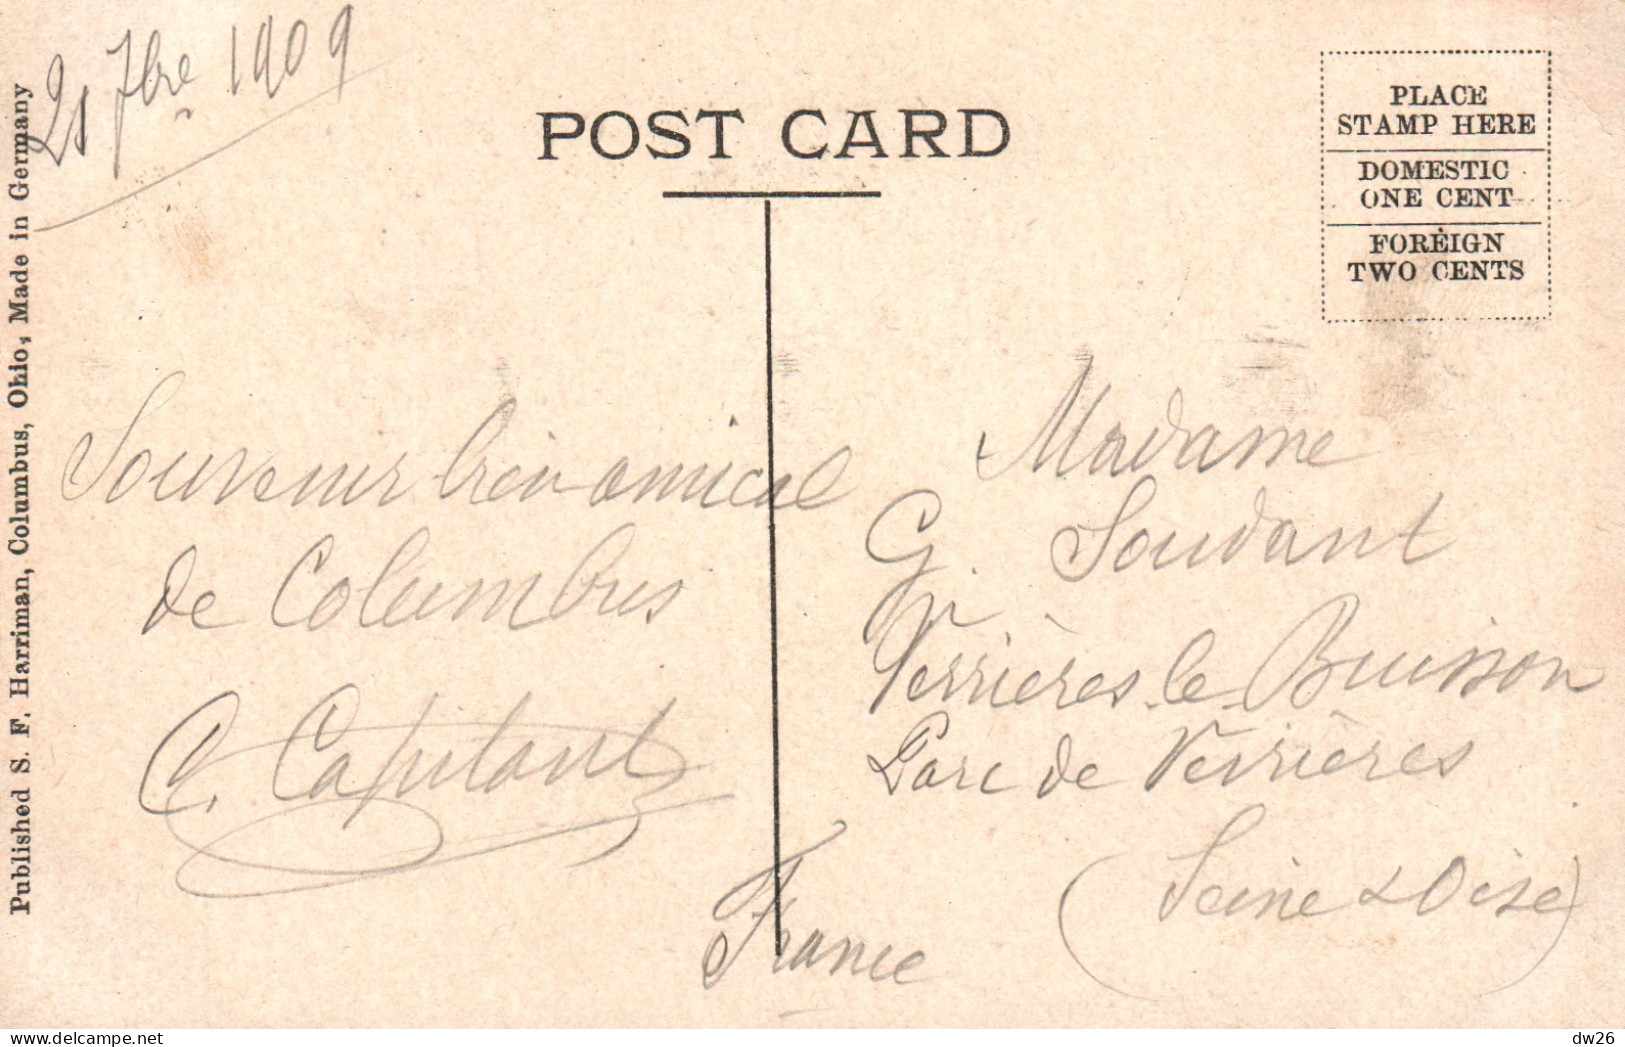 21 7bre 1909
POST CARD
PLACE
STAMP HERE
DOMESTIC
ONE CENT
FOREIGN
TWO CENTS
Published S. F. Harriman, Columbus, Ohio, Made in Germany
Souvenir bien amical
de Columbus
C. Capitant
Madame
G. Soudant
Verrières-le-Buisson
Parc de Verrières
(Seine & Oise)
France
www.delcampe.net
dw26